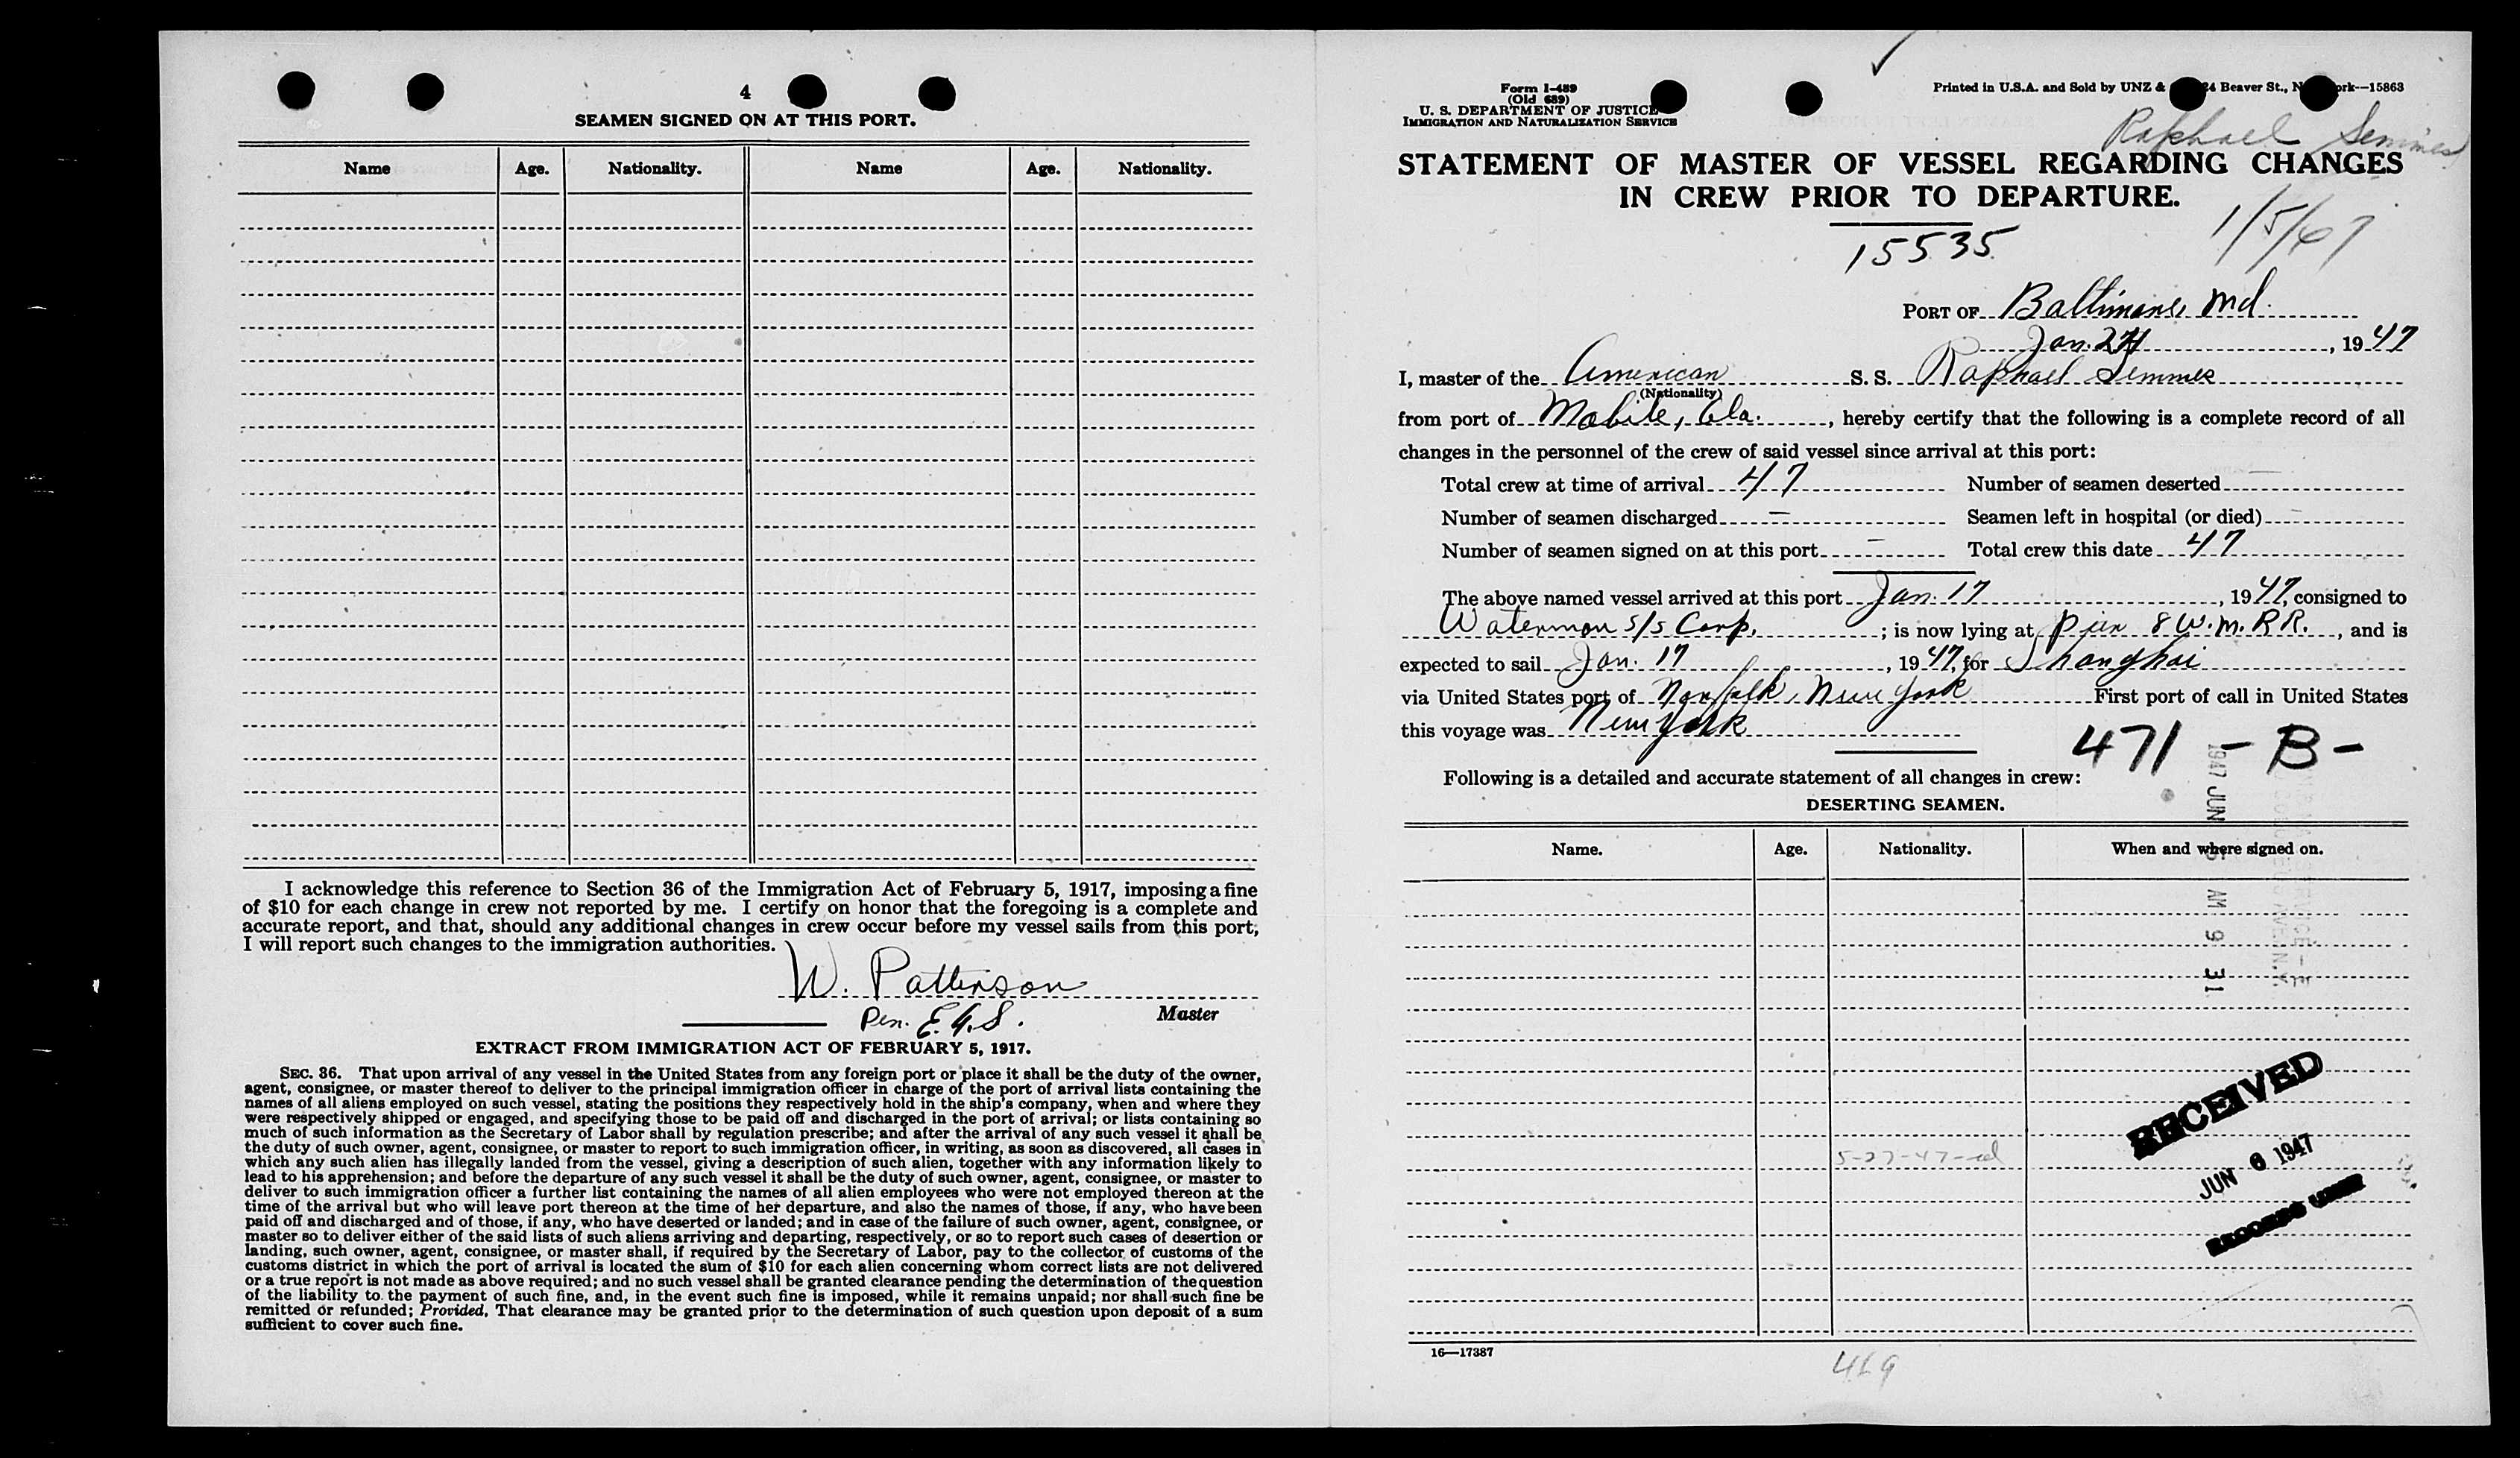 4
SEAMEN SIGNED ON AT THIS PORT.
Name Age. Nationality. Name Age. Nationality.
I acknowledge this reference to Section 36 of the Immigration Act of February 5, 1917, imposing a fine
of $10 for each change in crew not reported by me. I certify on honor that the foregoing is a complete and
accurate report, and that, should any additional changes in crew occur before my vessel sails from this port,
I will report such changes to the immigration authorities.
W. Patterson
Per. E.G.S. Master
EXTRACT FROM IMMIGRATION ACT OF FEBRUARY 5, 1917.
SEC. 36. That upon arrival of any vessel in the United States from any foreign port or place it shall be the duty of the owner,
agent, consignee, or master thereof to deliver to the principal immigration officer in charge of the port of arrival lists containing the
names of all aliens employed on such vessel, stating the positions they respectively hold in the ship's company, when and where they
were respectively shipped or engaged, and specifying those to be paid off and discharged in the port of arrival; or lists containing so
much of such information as the Secretary of Labor shall by regulation prescribe; and after the arrival of any such vessel it shall be
the duty of such owner, agent, consignee, or master to report to such immigration officer, in writing, as soon as discovered, all cases in
which any such alien has illegally landed from the vessel, giving a description of such alien, together with any information likely to
lead to his apprehension; and before the departure of any such vessel it shall be the duty of such owner, agent, consignee, or master to
deliver to such immigration officer a further list containing the names of all alien employees who were not employed thereon at the
time of the arrival but who will leave port thereon at the time of her departure, and also the names of those, if any, who have been
paid off and discharged and of those, if any, who have deserted or landed; and in case of the failure of such owner, agent, consignee, or
master so to deliver either of the said lists of such aliens arriving and departing, respectively, or so to report such cases of desertion or
landing, such owner, agent, consignee, or master shall, if required by the Secretary of Labor, pay to the collector of customs of the
customs district in which the port of arrival is located the sum of $10 for each alien concerning whom correct lists are not delivered
or a true report is not made as above required; and no such vessel shall be granted clearance pending the determination of the question
of the liability to the payment of such fine, and, in the event such fine is imposed, while it remains unpaid; nor shall such fine be
remitted or refunded; Provided, That clearance may be granted prior to the determination of such question upon deposit of a sum
sufficient to cover such fine.
Form I-489
(Old 689)
U. S. DEPARTMENT OF JUSTICE
IMMIGRATION AND NATURALIZATION SERVICE
Printed in U.S.A. and Sold by UNZ & 24 Beaver St., N ork—15863
Raphael Semmes
STATEMENT OF MASTER OF VESSEL REGARDING CHANGES
IN CREW PRIOR TO DEPARTURE.
1/5/67
15535
PORT OF Baltimore, Md.
Jan. 24, 1947
I, master of the American S. S. Raphael Semmes
(Nationality)
from port of Mobile, Ala., hereby certify that the following is a complete record of all
changes in the personnel of the crew of said vessel since arrival at this port:
Total crew at time of arrival 47 Number of seamen deserted —
Number of seamen discharged — Seamen left in hospital (or died) —
Number of seamen signed on at this port — Total crew this date 47
The above named vessel arrived at this port Jan. 17, 1947, consigned to
Waterman S/S Corp.; is now lying at pier 8 W.M.RR., and is
expected to sail Jan. 17, 1947, for Shanghai
via United States port of Norfolk, New York First port of call in United States
this voyage was New York
471 - B -
Following is a detailed and accurate statement of all changes in crew:
DESERTING SEAMEN.
Name. Age. Nationality. When and where signed on.
1947 JUN 5 AM 9 31
5-27-47-
RECEIVED
JUN 6 1947
RECORDS
16—17387
469